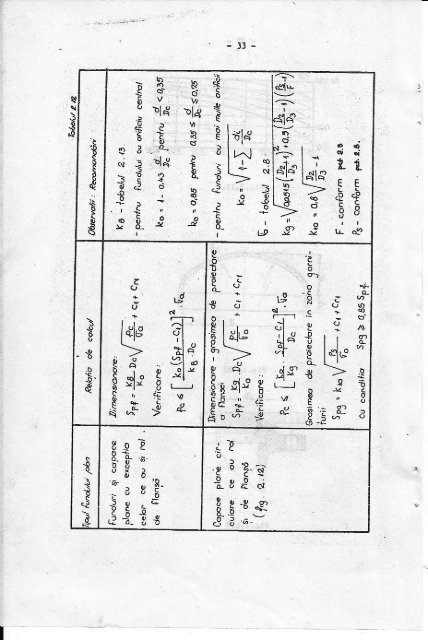 - 33 -
Tabelul 2.12
Tipul fundului plan
Relația de calcul
Observații. Recomandări
Funduri și capace
plane cu excepția
celor ce au și rol
de flanșă
Dimensionare:
Spf = KB/Ko Dc √(Pc/σa) + C1 + Cr1
Verificare:
Pc ≤ [Ko (Spf - C1)/(KB · Dc)]² · σa
KB - tabelul 2.13
- pentru funduri cu orificiu central
ko = 1 - 0.43 d/Dc pentru d/Dc < 0,35
ko = 0,85 pentru 0,35 ≤ d/Dc ≤ 0,75
- pentru funduri cu mai multe orificii
Ko = √(1 - Σ di/Dc)
Capace plane cir-
culare ce au rol
și de flanșă
(fig. 2.12)
Dimensionare - grosimea de proiectare
a flanșei
Spf = Kg/Ko Dc √(Pc/σa) + C1 + Cr1
Verificare:
Pc ≤ [Ko/Kg · (Spf - C1)/Dc]² · σa
Grosimea de proiectare în zona garni-
turii
Spg = k10 √(Pg/σa) + C1 + Cr1
cu condiția Spg ≥ 0,85 Spf.
- tabelul 2.8
K10 = 0,8 √(D2/D3 - 1)
F - conform pct. 2.3
- conform pct. 2.3.